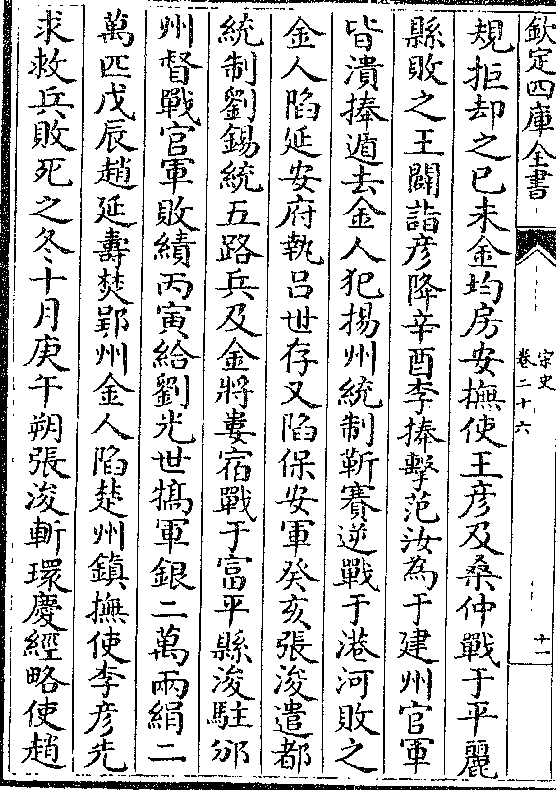 欽定四庫全書
宋史
卷二十六
十一
規拒却之已未金均房安撫使王彦及桑仲戰于平麗
縣敗之王闢詣彦降辛酉李捧擊范汝為于建州官軍
皆潰捧遁去金人犯揚州統制靳賽逆戰于港河敗之
金人陷延安府執呂世存又陷保安軍癸亥張浚遣都
統制劉錫統五路兵及金將婁宿戰于富平縣浚駐邠
州督戰官軍敗績丙寅給劉光世犒軍銀二萬兩絹二
萬匹戊辰趙延壽焚郢州金人陷楚州鎮撫使李彦先
求救兵敗死之冬十月庚午朔張浚斬環慶經略使趙